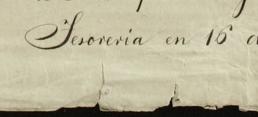 Tesoreria en 16 d